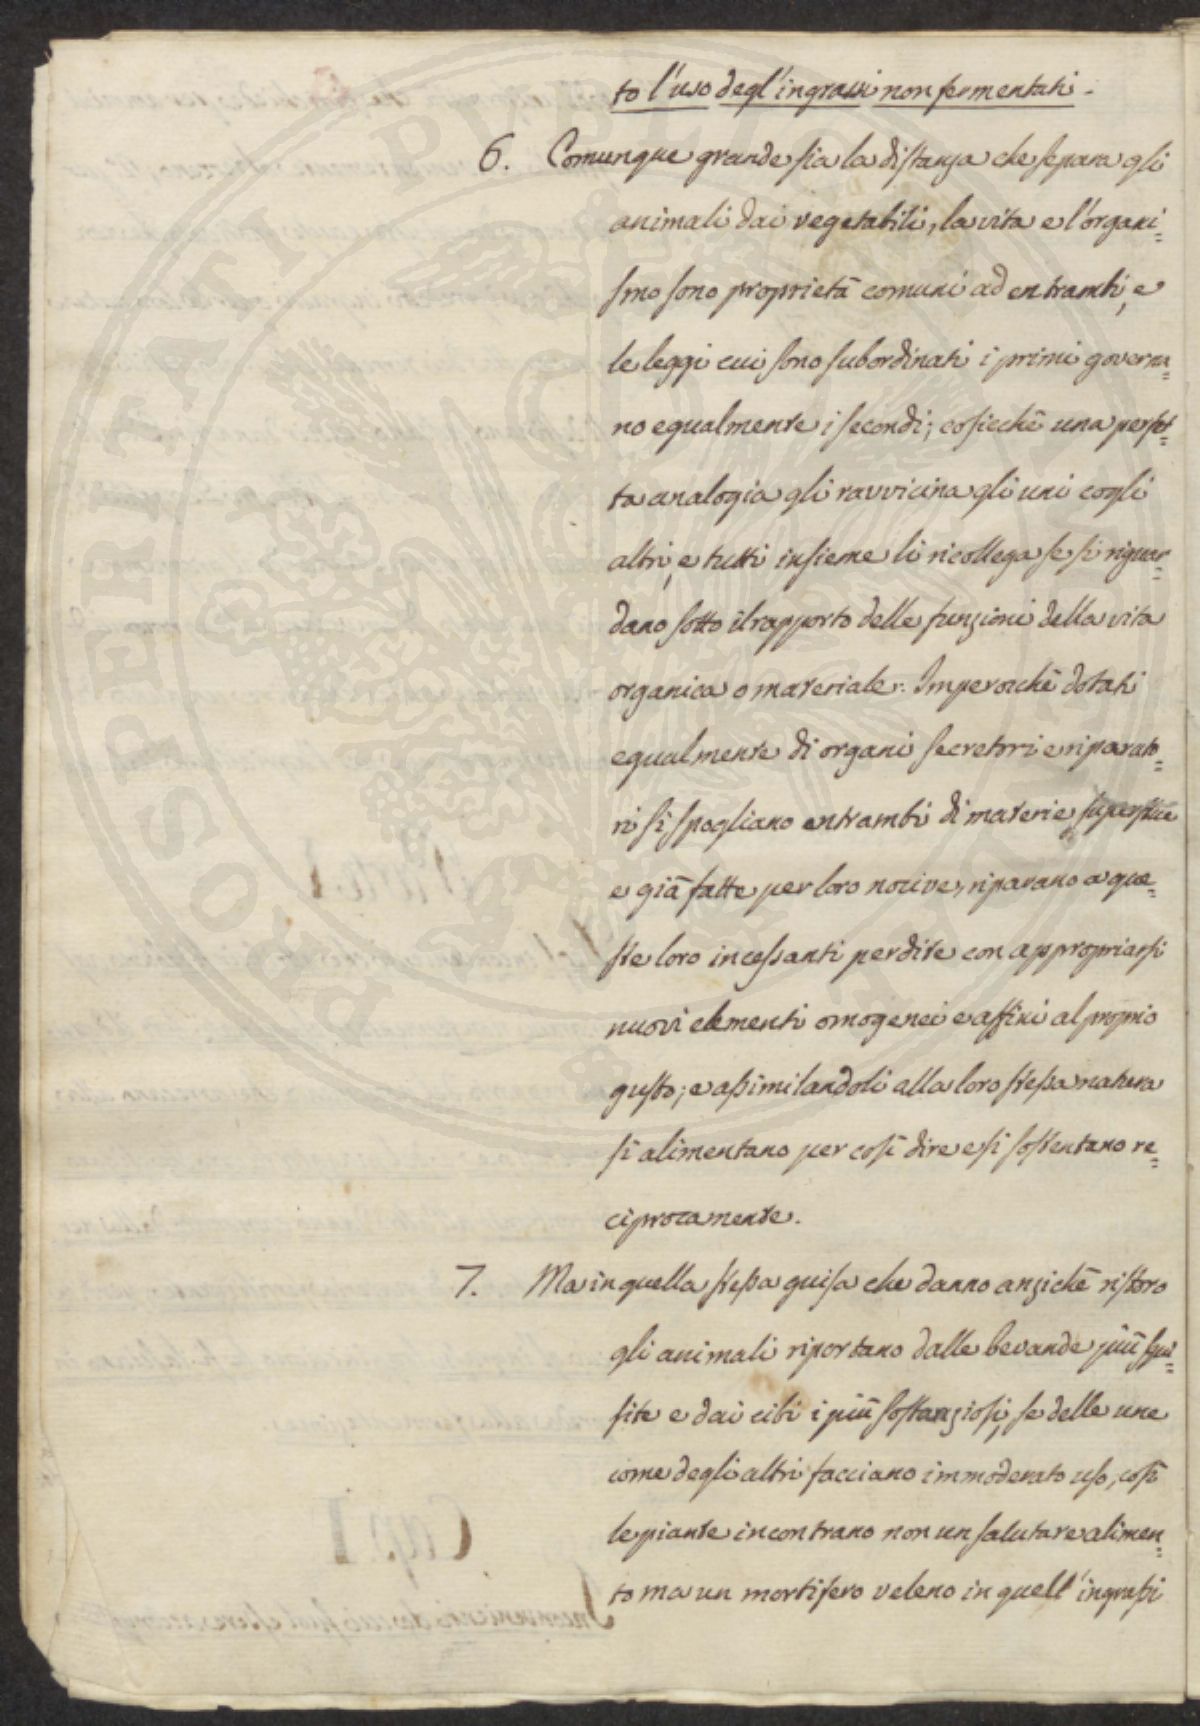 to l'uso degl'ingrassi non fermentati.
6. Comunque grande sia la distanza che separa gli
animali dai vegetabili, la vita e l'organi=
smo sono proprietà comuni ad entrambi, e
le leggi cui sono subordinati i primi governa=
no equalmente i secondi; cosicchè una perfet=
ta analogia gli ravvicina gli uni cogli
altri, e tutti insieme li ricollega se si riguar=
dano sotto il rapporto delle funzioni della vita
organica o materiale. Imperocchè dotati
equalmente di organi secretorri e riparato=
ri si spogliano entrambi di materie superflue
e già fatte per loro nocive, riparano a que=
ste loro incessanti perdite con appropriarsi
nuovi elementi omogenei e affini al proprio
gusto; e assimilandoli alla loro stessa natura
si alimentano per così dire e si sostentano re=
ciprocamente.
7. Ma in quella stessa guisa che danno anzichè ristoro
gli animali riportano dalle bevande più squi=
site e dai cibi i più sostanziosi, se delle une
come degli altri facciano immoderato uso, così
le piante incontrano non un salutare alimen=
to ma un mortifero veleno in quell'ingrassi
PROSPERITATI PUBLICAE